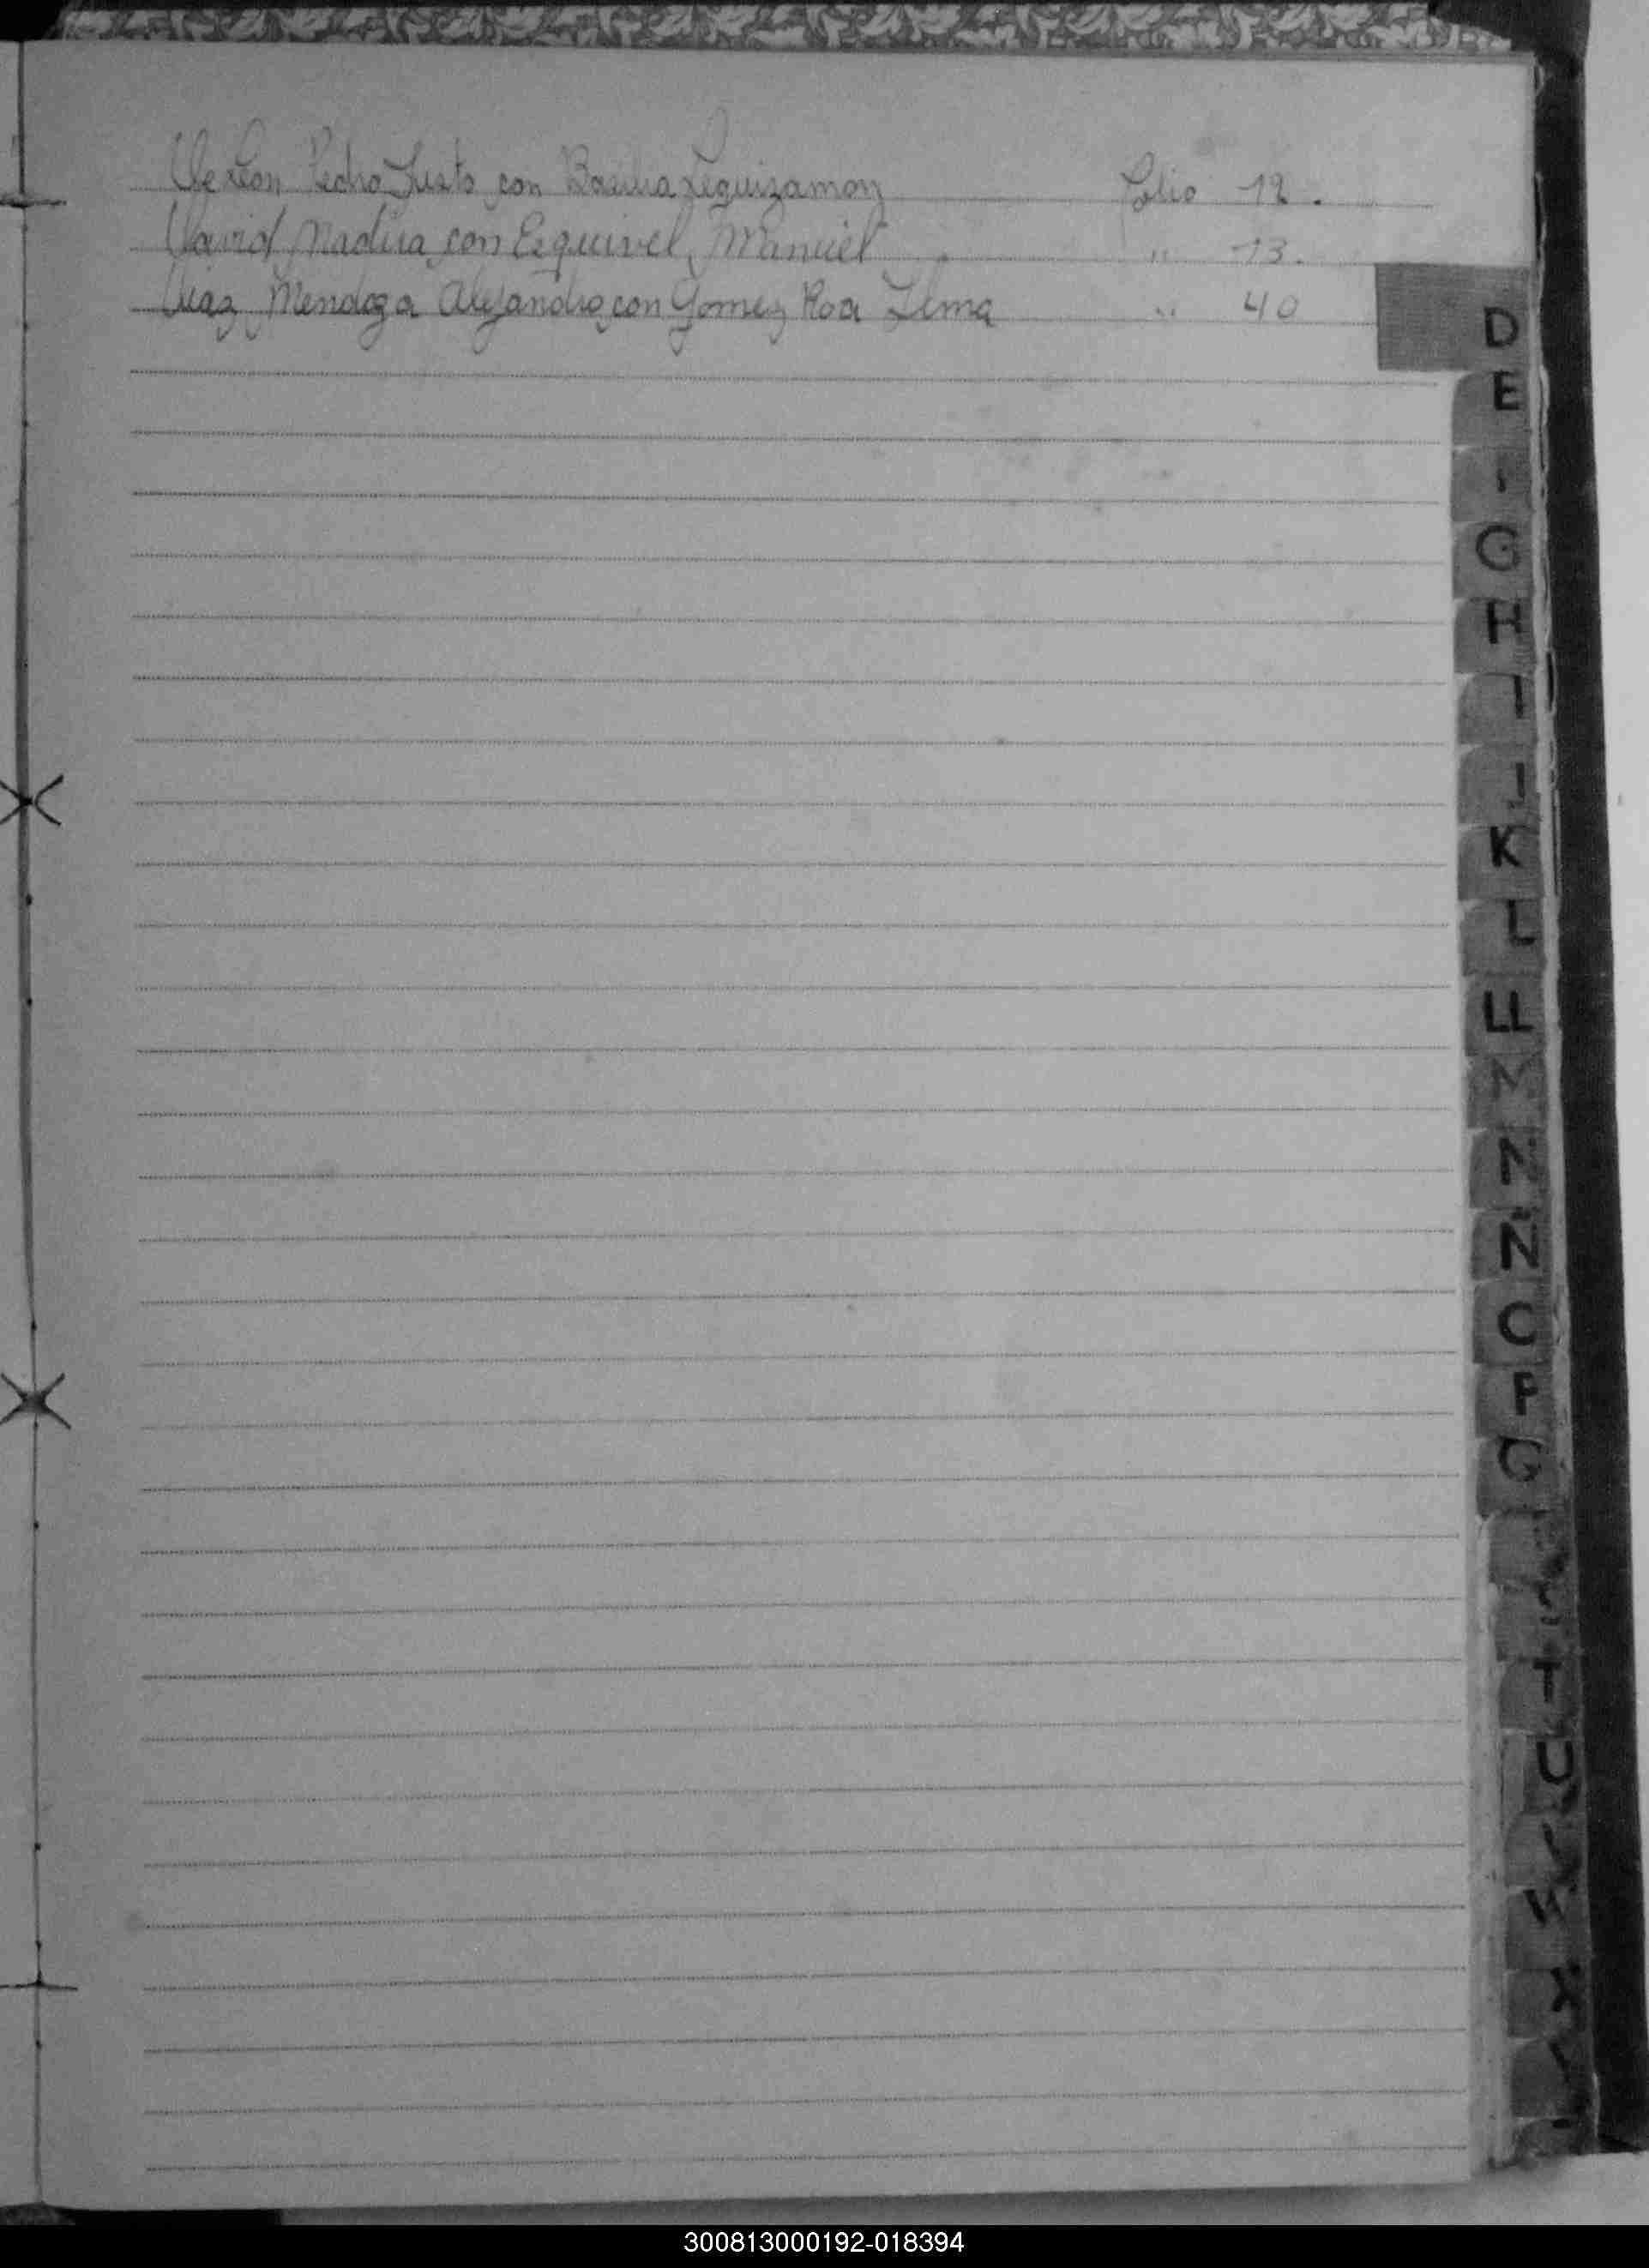 De Leon Pedro Justo con Basilia Leguizamon Folio 12.
David Nadira con Esquivel, Manuel " 13.
Diaz Mendoza Alejandro con Gomez Roa Ilma " 40
D
E
G
H
I
J
K
L
LL
M
N
Ñ
O
P
Q
T
U
V
W
X
300813000192-018394